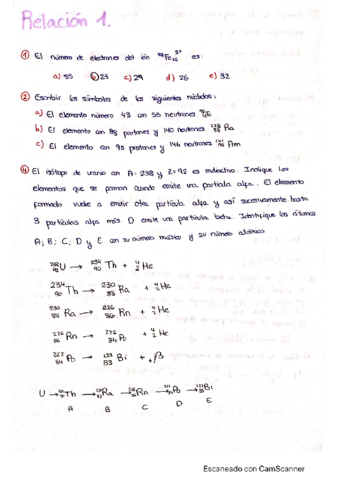 Relación 1.
① El número de electrones del ión ⁵⁶Fe₂₆³⁺ es:
a) 55 b) 23 c) 29 d) 26 e) 32
② Escribir los símbolos de los siguientes núclidos:
a) El elemento número 43 con 55 neutrones
b) El elemento con 88 protones y 140 neutrones. ²²⁸₈₈ Ra
c) El elemento con 90 protones y 146 neutrones
④ El isótopo de uranio con A=238 y Z=92 es radiactivo. Indique los
elementos que se forman cuando emite una partícula alpa. El elemento
formado vuelve a emitir otra partícula alpa y así sucesivamente hasta
3 partículas alpa más. D emite una partícula beta. Identifique los átomos
A; B; C; D y E con su número másico y su número atómico
²³⁸₉₂U → ²³⁴₉₀ Th + ⁴₂ He
²³⁴₉₀ Th → ²³⁰₈₈ Ra + ⁴₂ He
²³⁰₈₈ Ra → ²²⁶₈₆ Rn + ⁴₂ He
²²⁶₈₆ Rn → ²²²₈₄ Po + ⁴₂ He
₈₄ Po → Bi + β
U → Th → Ra → Rn → Po → Bi
A B C D E
Escaneado con CamScanner